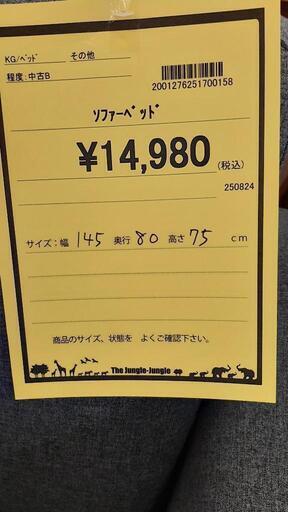 KG/ベッド その他
程度:中古B
2001276251700158
ソファーベッド
¥14,980(税込)
250824
サイズ:幅 145 奥行 80 高さ 75 cm
商品のサイズ、状態を よくご確認下さい。
The Jungle-Jungle